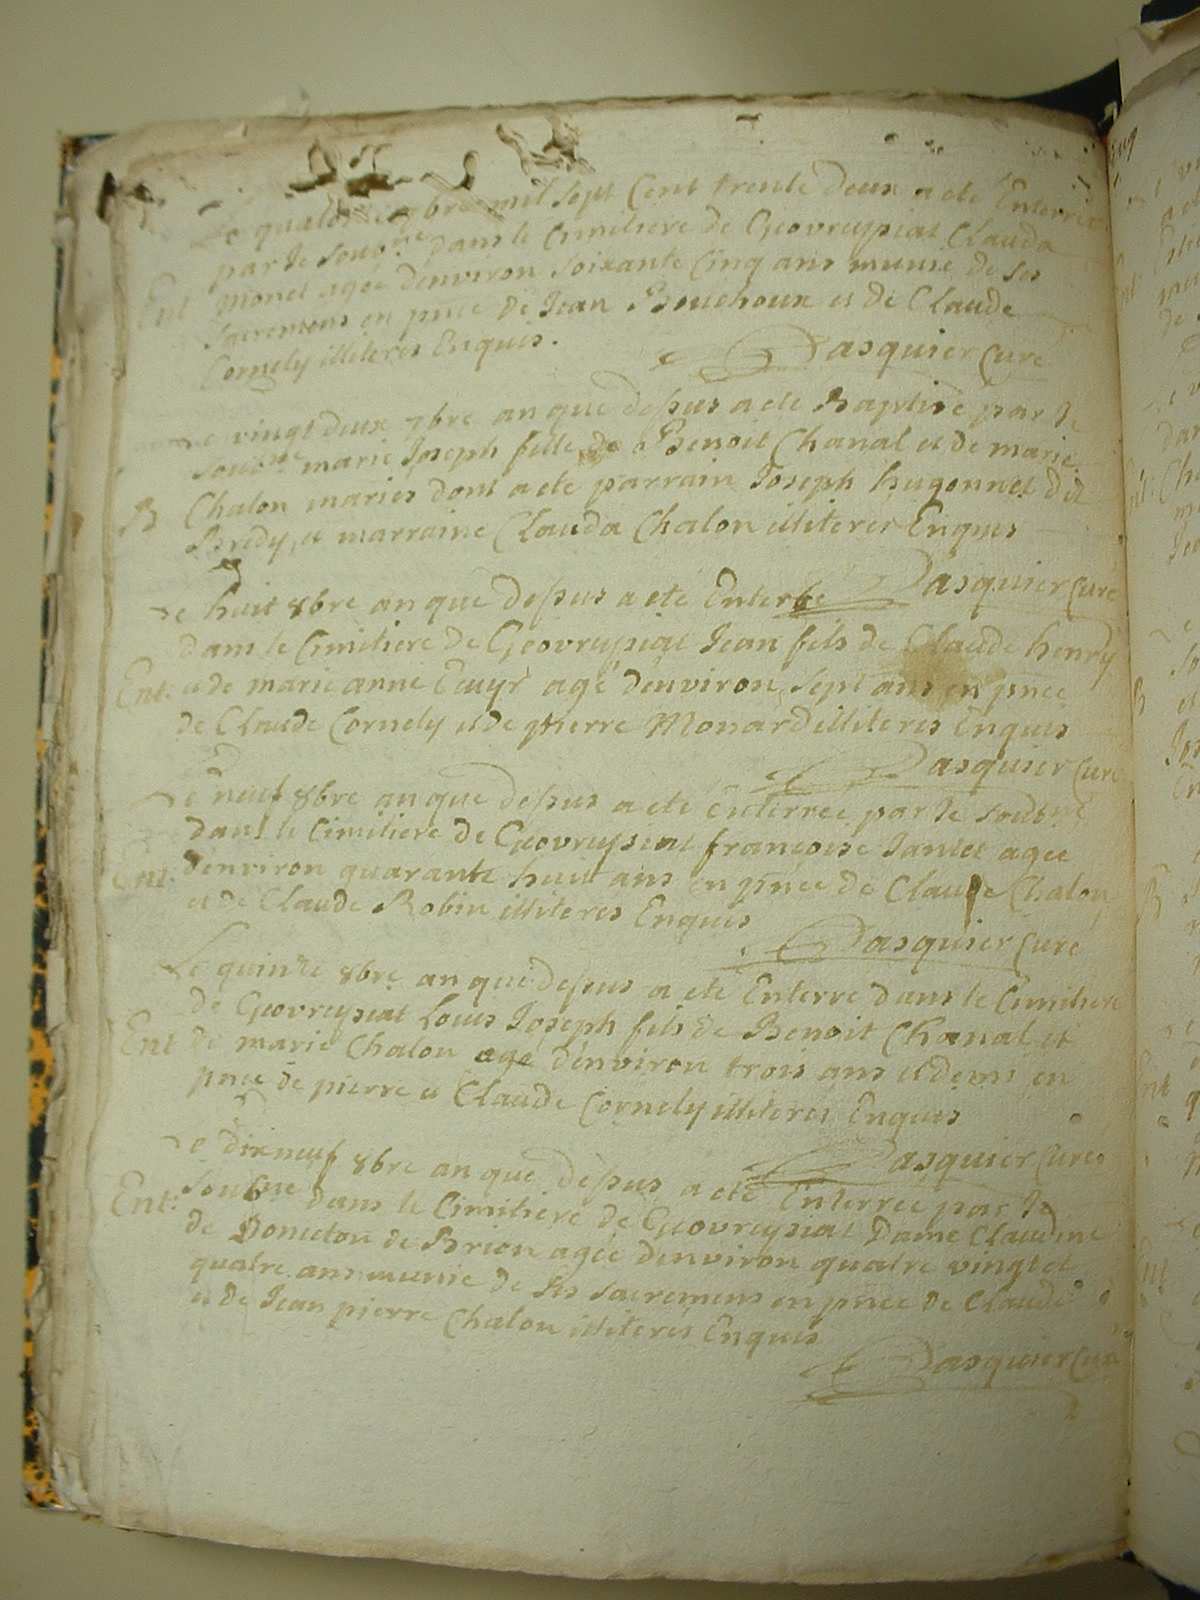 Le quatorze 7bre mil sept Cent trente Deux a eté Enterrée
par Je Sousne dans le Cimitiere de Geovreysiat Clauda
Ent Monet agée d'environ soixante Cinq ans munie de ses
sacremens en pnce de Jean Bouchoux et de Claude
Cornely illiteres Enquis.
Pasquier Curé
Le vingt deux 7bre an que dessus a eté Baptisé par Je
sousne marie Joseph fille de Benoit Chanal et de marie
B Chalon maries dont a eté parrain Joseph hugonnet dit
Bredy, et marraine Clauda Chalon illiteres Enquis
Pasquier Curé
Le huit 8bre an que dessus a eté Enterré
dans le Cimitiere de Geovreysiat Jean fils de Claude henry
Ent: et de marie anne agé d'environ sept ans en pnce
de Claude Cornely et de pierre Monard illiteres Enquis
Pasquier Curé
Le neuf 8bre an que dessus a eté enterrée par Je sousne
dans le Cimitiere de Geovreysiat françoise Jantet agée
Ent: d'environ quarante huit ans en pnce de Claude Chalon
et de Claude Robin illiteres Enquis
Pasquier Curé
Le quinze 8bre an que dessus a eté Enterré dans le Cimitiere
de Geovreysiat Louis Joseph fils de Benoit Chanal et
Ent de marie Chalon agé d'environ trois ans et demi en
pnce de pierre et Claude Cornely illiteres Enquis
Pasquier Curé
Le dixneuf 8bre an que dessus a eté Enterrée par Je
Ent: sousne dans le Cimitiere de Geovreysiat Dame Claudine
de Dometon de Brion agée d'environ quatre vingt et
quatre ans munie de ses sacremens en pnce de Claude
et de Jean pierre Chalon illiteres Enquis
Pasquier Curé